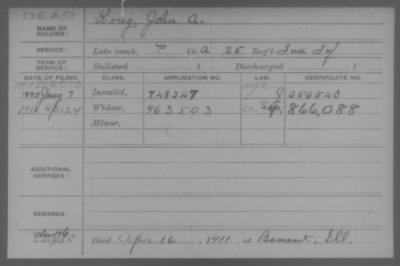 DEAD
NAME OF SOLDIER: Long, John A.
SERVICE: Late rank, P Co. A, 25 Reg't Ind Inf
TERM OF SERVICE: Enlisted , 1 Discharged , 1
DATE OF FILING. CLASS. APPLICATION NO. LAW. CERTIFICATE NO.
1890 7 Invalid, 748247 656543
24 Widow, 963503 866,088
Minor,
ADDITIONAL SERVICES:
REMARKS:
Died Apr 16, 1911, at Bement, Ill.